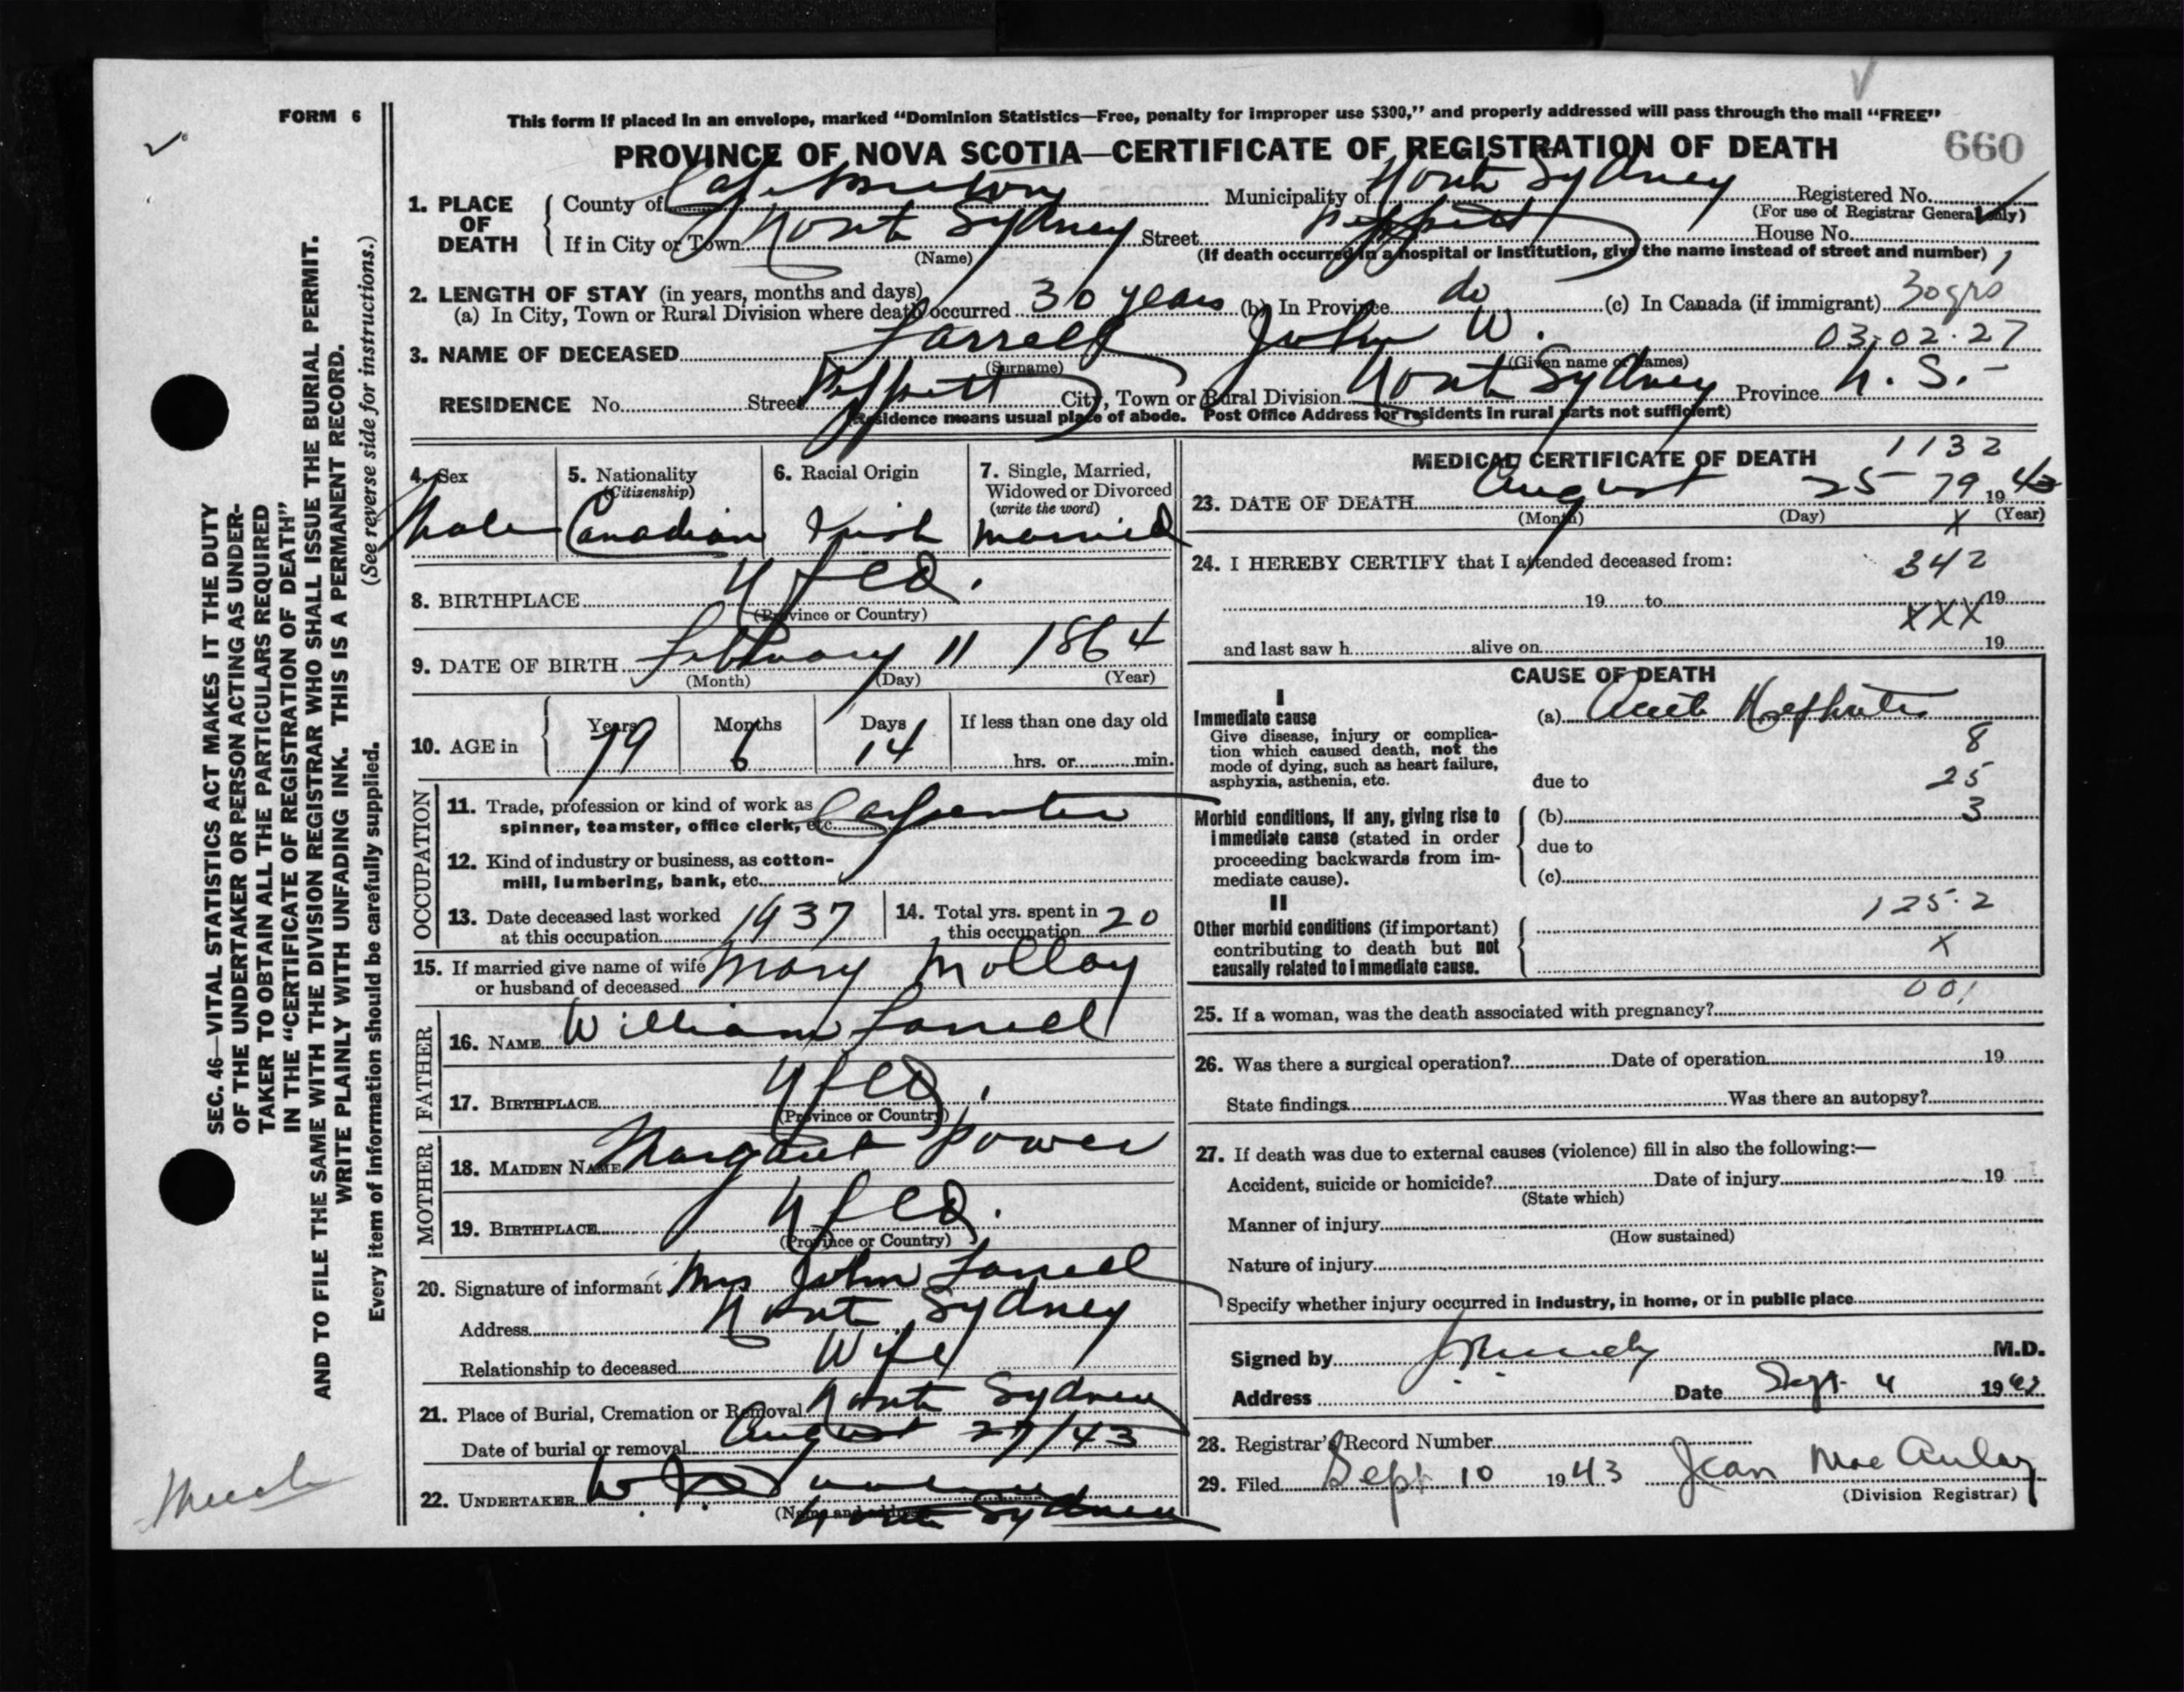 FORM 6
This form if placed in an envelope, marked “Dominion Statistics—Free, penalty for improper use $300,” and properly addressed will pass through the mail “FREE”
PROVINCE OF NOVA SCOTIA—CERTIFICATE OF REGISTRATION OF DEATH 660
1. PLACE OF DEATH
County of Cape Breton Municipality of North Sydney Registered No.
(For use of Registrar General only)
If in City or Town North Sydney Street Peppett House No.
(Name) (If death occurred in a hospital or institution, give the name instead of street and number)
2. LENGTH OF STAY (in years, months and days)
(a) In City, Town or Rural Division where death occurred 30 years (b) In Province do (c) In Canada (if immigrant) 30 yrs
03.02.27
3. NAME OF DECEASED Farrell John W.
(Surname) (Given name or names)
RESIDENCE No. Street Peppett City, Town or Rural Division North Sydney Province N. S.
(Residence means usual place of abode. Post Office Address for residents in rural parts not sufficient)
4. Sex 5. Nationality (Citizenship) 6. Racial Origin 7. Single, Married, Widowed or Divorced (write the word)
Male Canadian Irish Married
8. BIRTHPLACE Nfld.
(Province or Country)
9. DATE OF BIRTH February 11 1864
(Month) (Day) (Year)
10. AGE in Years Months Days If less than one day old
79 6 14 hrs. or min.
OCCUPATION
11. Trade, profession or kind of work as spinner, teamster, office clerk, etc. Carpenter
12. Kind of industry or business, as cotton-mill, lumbering, bank, etc.
13. Date deceased last worked at this occupation 1937
14. Total yrs. spent in this occupation 20
15. If married give name of wife or husband of deceased Mary Molloy
FATHER
16. NAME William Farrell
17. BIRTHPLACE Nfld.
(Province or Country)
MOTHER
18. MAIDEN NAME Margaret Power
19. BIRTHPLACE Nfld.
(Province or Country)
20. Signature of informant Mrs John Farrell
Address North Sydney
Relationship to deceased Wife
21. Place of Burial, Cremation or Removal North Sydney
Date of burial or removal August 27/43
22. UNDERTAKER W.
(Name and address) North Sydney
1132
MEDICAL CERTIFICATE OF DEATH
23. DATE OF DEATH August 25 79 1943
(Month) (Day) (Year)
X
24. I HEREBY CERTIFY that I attended deceased from:
342
19 to 19
XXX
and last saw h alive on 19
CAUSE OF DEATH
I
Immediate cause
Give disease, injury or complication which caused death, not the mode of dying, such as heart failure, asphyxia, asthenia, etc.
(a) Acute Nephritis
8
due to 25
Morbid conditions, if any, giving rise to immediate cause (stated in order proceeding backwards from immediate cause).
(b) 3
due to
(c)
II
Other morbid conditions (if important) contributing to death but not causally related to immediate cause.
125.2
X
001
25. If a woman, was the death associated with pregnancy?
26. Was there a surgical operation? Date of operation 19
State findings Was there an autopsy?
27. If death was due to external causes (violence) fill in also the following:—
Accident, suicide or homicide? Date of injury 19
(State which)
Manner of injury
(How sustained)
Nature of injury
Specify whether injury occurred in industry, in home, or in public place
Signed by M.D.
Address Date Sept. 4 19
28. Registrar's Record Number
29. Filed Sept 10 1943 Jean MacAulay
(Division Registrar)
SEC. 46—VITAL STATISTICS ACT MAKES IT THE DUTY
OF THE UNDERTAKER OR PERSON ACTING AS UNDER-
TAKER TO OBTAIN ALL THE PARTICULARS REQUIRED
IN THE “CERTIFICATE OF REGISTRATION OF DEATH”
AND TO FILE THE SAME WITH THE DIVISION REGISTRAR WHO SHALL ISSUE THE BURIAL PERMIT.
WRITE PLAINLY WITH UNFADING INK. THIS IS A PERMANENT RECORD.
(See reverse side for instructions.)
Every item of information should be carefully supplied.